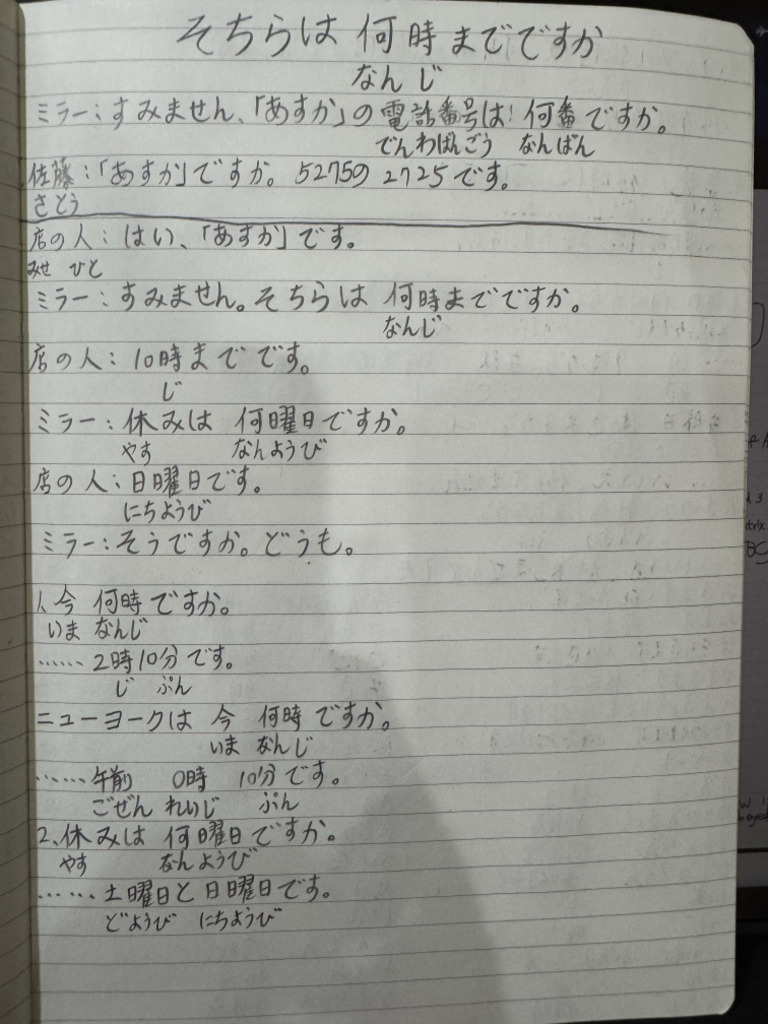 そちらは 何時までですか
なんじ
ミラー：すみません、「あすか」の 電話番号は 何番ですか。
でんわばんごう なんばん
佐藤：「あすか」ですか。5275の 2725です。
さとう
店の人：はい、「あすか」です。
みせ ひと
ミラー：すみません。そちらは 何時までですか。
なんじ
店の人：10時までです。
じ
ミラー：休みは 何曜日ですか。
やす なんようび
店の人：日曜日です。
にちようび
ミラー：そうですか。どうも。
1、今 何時ですか。
いま なんじ
……2時10分です。
じ ぷん
ニューヨークは 今 何時ですか。
いま なんじ
……午前 0時 10分です。
ごぜん れいじ ぷん
2、休みは 何曜日ですか。
やす なんようび
……土曜日と 日曜日です。
どようび にちようび